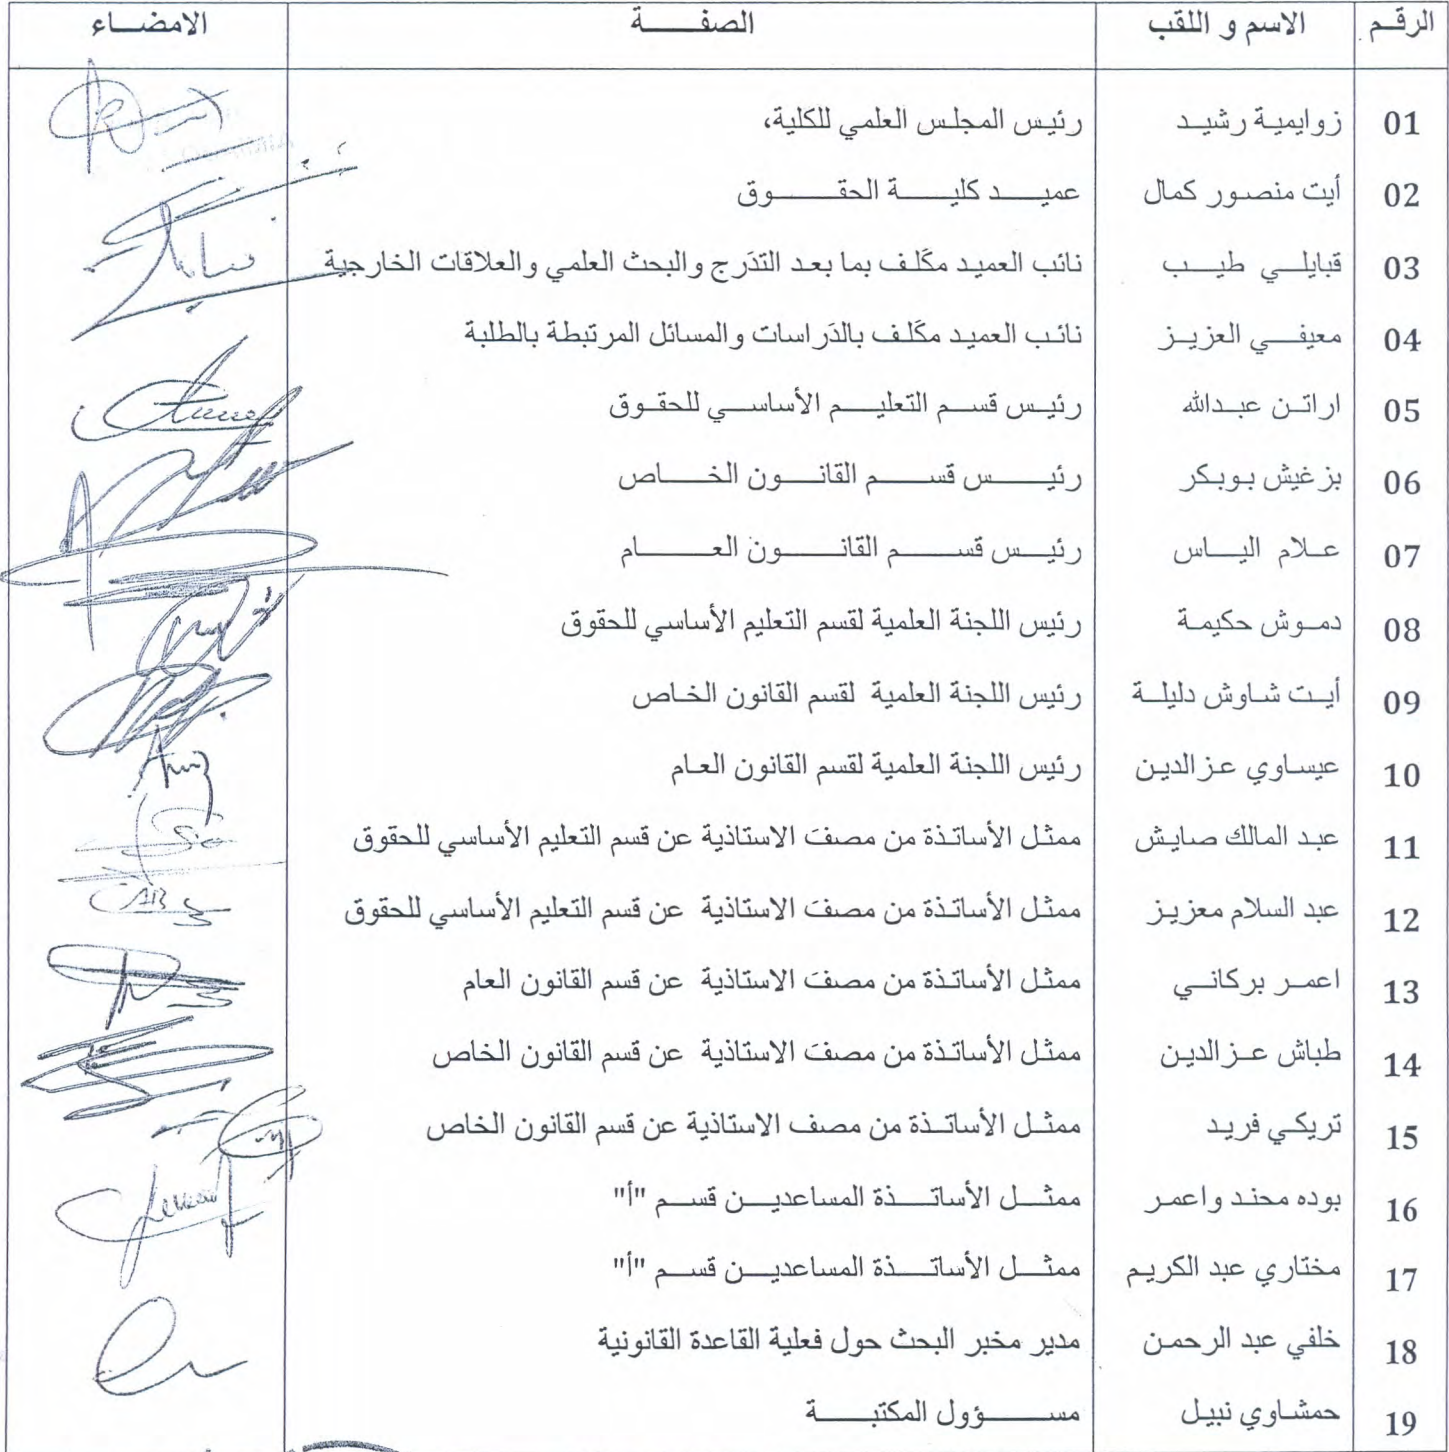 الرقم الاسم و اللقب الصفة الامضاء
01 زوايمية رشيد رئيس المجلس العلمي للكلية،
02 أيت منصور كمال عميد كلية الحقوق
03 قبايلي طيب نائب العميد مكَلف بما بعد التدَرج والبحث العلمي والعلاقات الخارجية
04 معيفي العزيز نائب العميد مكَلف بالدَراسات والمسائل المرتبطة بالطلبة
05 اراتن عبدالله رئيس قسم التعليم الأساسي للحقوق
06 بزغيش بوبكر رئيس قسم القانون الخاص
07 علام الياس رئيس قسم القانون العام
08 دموش حكيمة رئيس اللجنة العلمية لقسم التعليم الأساسي للحقوق
09 أيت شاوش دليلة رئيس اللجنة العلمية لقسم القانون الخاص
10 عيساوي عزالدين رئيس اللجنة العلمية لقسم القانون العام
11 عبد المالك صايش ممثل الأساتذة من مصفَ الاستاذية عن قسم التعليم الأساسي للحقوق
12 عبد السلام معزيز ممثل الأساتذة من مصفَ الاستاذية عن قسم التعليم الأساسي للحقوق
13 اعمر بركاني ممثل الأساتذة من مصفَ الاستاذية عن قسم القانون العام
14 طباش عزالدين ممثل الأساتذة من مصفَ الاستاذية عن قسم القانون الخاص
15 تريكي فريد ممثل الأساتذة من مصف الاستاذية عن قسم القانون الخاص
16 بوده محند واعمر ممثل الأساتذة المساعدين قسم "أ"
17 مختاري عبد الكريم ممثل الأساتذة المساعدين قسم "أ"
18 خلفي عبد الرحمن مدير مخبر البحث حول فعلية القاعدة القانونية
19 حمشاوي نبيل مسؤول المكتبة